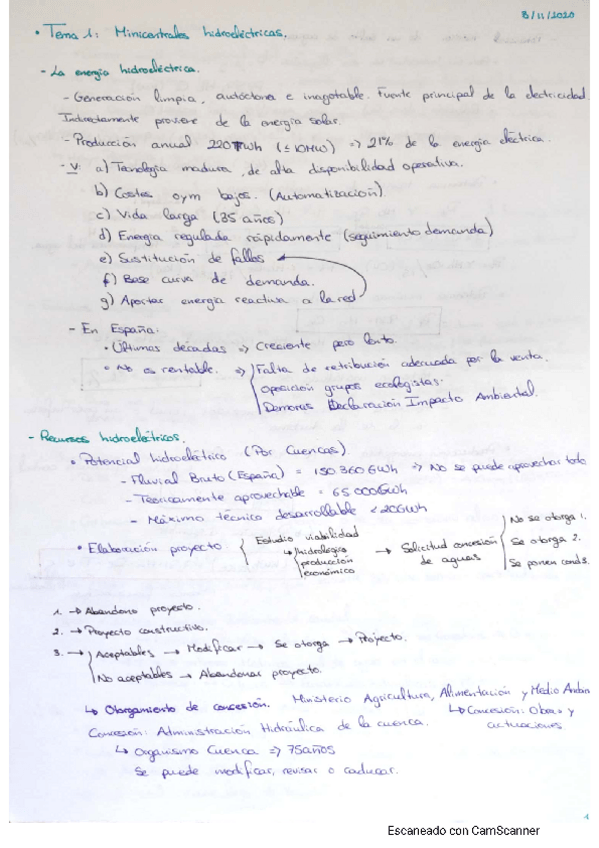 3/11/2020
• Tema 1: Minicentrales hidroeléctricas.
- La energía hidroeléctrica.
- Generación limpia, autóctona e inagotable. Fuente principal de la electricidad.
Indirectamente proviene de la energía solar.
- Producción anual 220TWh (≤10MW) => 21% de la energía eléctrica.
- V: a) Tecnología madura, de alta disponibilidad operativa.
b) Costes oym bajos. (Automatización)
c) Vida larga (35 años)
d) Energía regulada rápidamente (seguimiento demanda)
e) Sustitución de fallos
f) Base curva de demanda.
g) Aportar energía reactiva a la red
- En España:
• Últimas décadas => Creciente pero lento.
• No es rentable. => Falta de retribución adecuada por la venta.
Oposición grupos ecologistas.
Demoras Declaración Impacto Ambiental.
- Recursos hidroeléctricos.
• Potencial hidroeléctrico (Por Cuencas).
- Fluvial Bruto (España) = 150 360 GWh => No se puede aprovechar todo
- Teóricamente aprovechable = 65 000 GWh
- Máximo técnico desarrollable < 20GWh
• Elaboración proyecto { Estudio viabilidad
↳ hidrológico
producción
económico
→ Solicitud concesión de aguas
No se otorga 1.
Se otorga 2.
Se ponen conds 3.
1. → Abandono proyecto.
2. → Proyecto constructivo.
3. → Aceptables → Modificar → Se otorga → Proyecto.
No aceptables → Abandonar proyecto.
↳ Otorgamiento de concesión. Ministerio Agricultura, Alimentación y Medio Ambien
↳ Concesión: Obra y actuaciones
Concesión: Administración Hidráulica de la cuenca.
↳ Organismo Cuenca => 75 años
Se puede modificar, revisar o caducar.
Escaneado con CamScanner